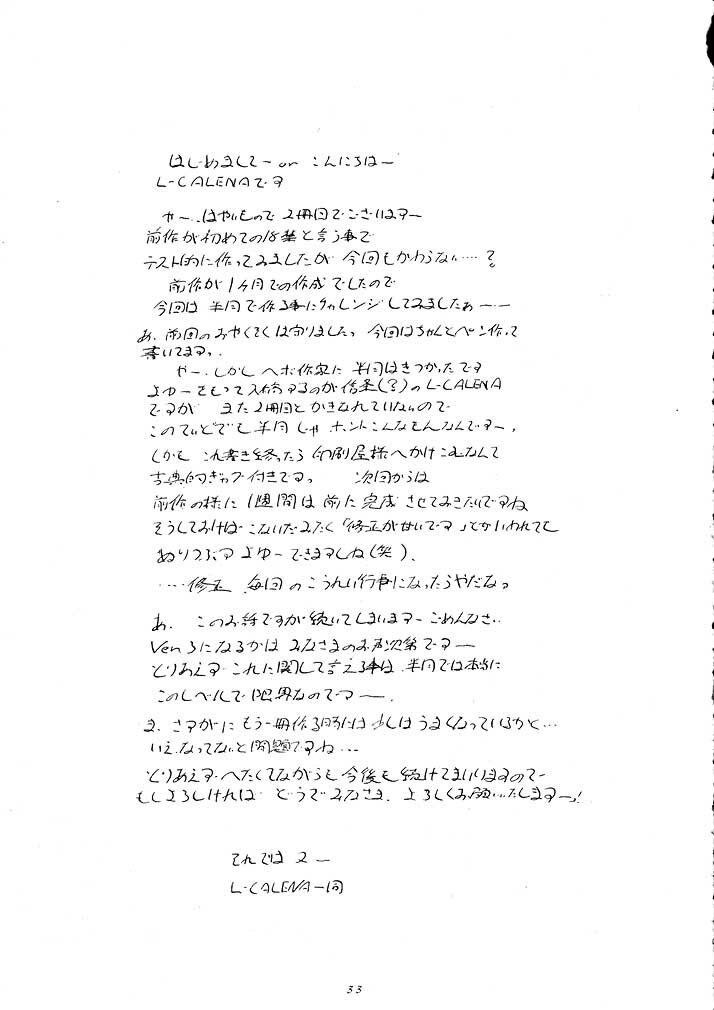 はじめましてー or こんにちはー
L-CALENAです
やー、はやいもので 2冊目でございますー
前作が初めての18禁と言う事で
テスト的に作ってみましたが 今回もかわらない‥‥?
前作が1ヶ月での作成でしたので
今回は 半月で作る事にチャレンジしてみましたぁーー
あ、前回のみやくそくは守りましたっ 今回はちゃんとペン作って
書いてますっ.
やー、しかし ヘボ作家に 半月はきつかったです
よゆーをもって入稿するのが信条(?)の L-CALENA
ですが まだ2冊目とかきなれていないので
このていどでも半月じゃ ホントこんなもんなんですー、
しかも これ書き終ったら 印刷屋様へかけこむなんて
古典的ギャグ付きですっ 次回からは
前作の様に 1週間は前に完成させておきたいですね
そうしておけば こないだみたく「修正が甘いです」とかいわれても
ぬりつぶす よゆーできますしね(笑).
‥‥修正 毎回のこうれい行事になったらやだなっ
あ、 このお話ですが続いてしまいますー ごめんなさい
Ven 3になるかは みなさまのお声次第ですー
とりあえず これに関して言える事は 半月では本当に
このレベルで限界なのですー.
ま、さすがに もう一冊作る頃には少しはうまくなっているかと…
いえ、なってないと問題ですね…
とりあえず へたくそながらも 今後も続けてまいりますのでー
もしよろしければ どうぞみなさま、よろしくお願いいたしますーっ!
それでは 2ー
L-CALENA一同
33